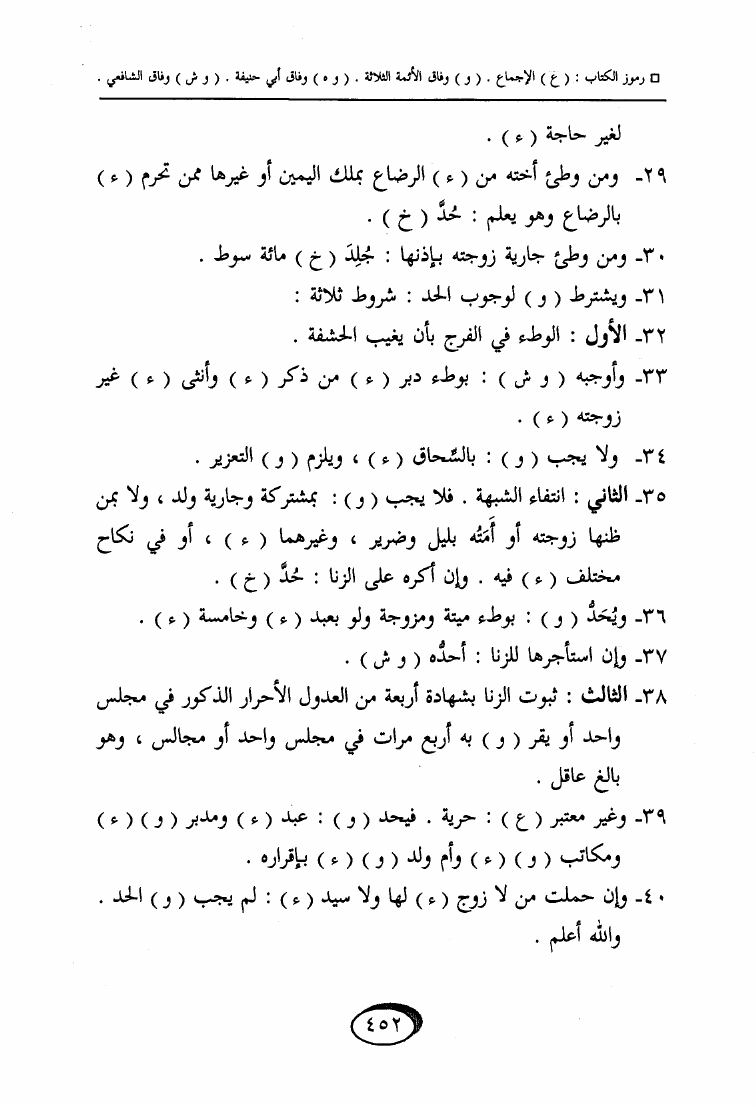 □ رموز الكتاب : ( ع ) الإجماع . ( و ) وفاق الأئمة الثلاثة . ( و ه ) وفاق أبي حنيفة . ( و ش ) وفاق الشافعي .
لغير حاجة ( ء ) .
٢٩ـ ومن وطئ أخته من ( ء ) الرضاع بملك اليمين أو غيرها ممن تحرم ( ء )
بالرضاع وهو يعلم : حُدَّ ( خ ) .
٣٠ـ ومن وطئ جارية زوجته بإذنها : جُلِدَ ( خ ) مائة سوط .
٣١ـ ويشترط ( و ) لوجوب الحد : شروط ثلاثة :
٣٢ـ الأول : الوطء في الفرج بأن يغيب الحشفة .
٣٣ـ وأوجبه ( و ش ) : بوطء دبر ( ء ) من ذكر ( ء ) وأنثى ( ء ) غير
زوجته ( ء ) .
٣٤ـ ولا يجب ( و ) : بالسِّحاق ( ء ) ، ويلزم ( و ) التعزير .
٣٥ـ الثاني : انتفاء الشبهة . فلا يجب ( و ) : بمشتركة وجارية ولد ، ولا بمن
ظنها زوجته أو أَمَتُه بليل وضرير ، وغيرهما ( ء ) ، أو في نكاح
مختلف ( ء ) فيه . وإن أكره على الزنا : حُدَّ ( خ ) .
٣٦ـ ويُحَدُّ ( و ) : بوطء ميتة ومزوجة ولو بعبد ( ء ) وخامسة ( ء ) .
٣٧ـ وإن استأجرها للزنا : أحدُّه ( و ش ) .
٣٨ـ الثالث : ثبوت الزنا بشهادة أربعة من العدول الأحرار الذكور في مجلس
واحد أو يقر ( و ) به أربع مرات في مجلس واحد أو مجالس ، وهو
بالغ عاقل .
٣٩ـ وغير معتبر ( ع ) : حرية . فيحد ( و ) : عبد ( ء ) ومدبر ( و ) ( ء )
ومكاتب ( و ) ( ء ) وأم ولد ( و ) ( ء ) بإقراره .
٤٠ـ وإن حملت من لا زوج ( ء ) لها ولا سيد ( ء ) : لم يجب ( و ) الحد .
والله أعلم .
٤٥٢